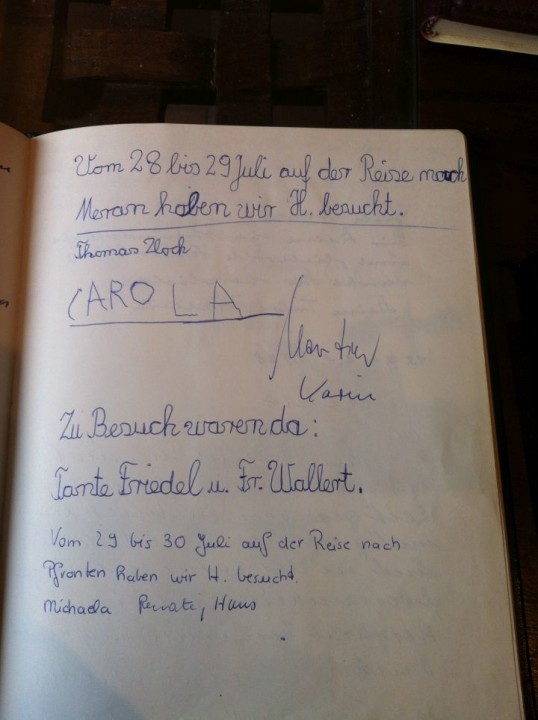 Vom 28 bis 29 Juli auf der Reise nach
Meran haben wir H. besucht.
Thomas Zloch
CAROLA
Karin
Zu Besuch waren da:
Tante Friedel u. Fr. Wallert.
Vom 29 bis 30 Juli auf der Reise nach
Pfronten haben wir H. besucht.
Michaela Renate, Hans